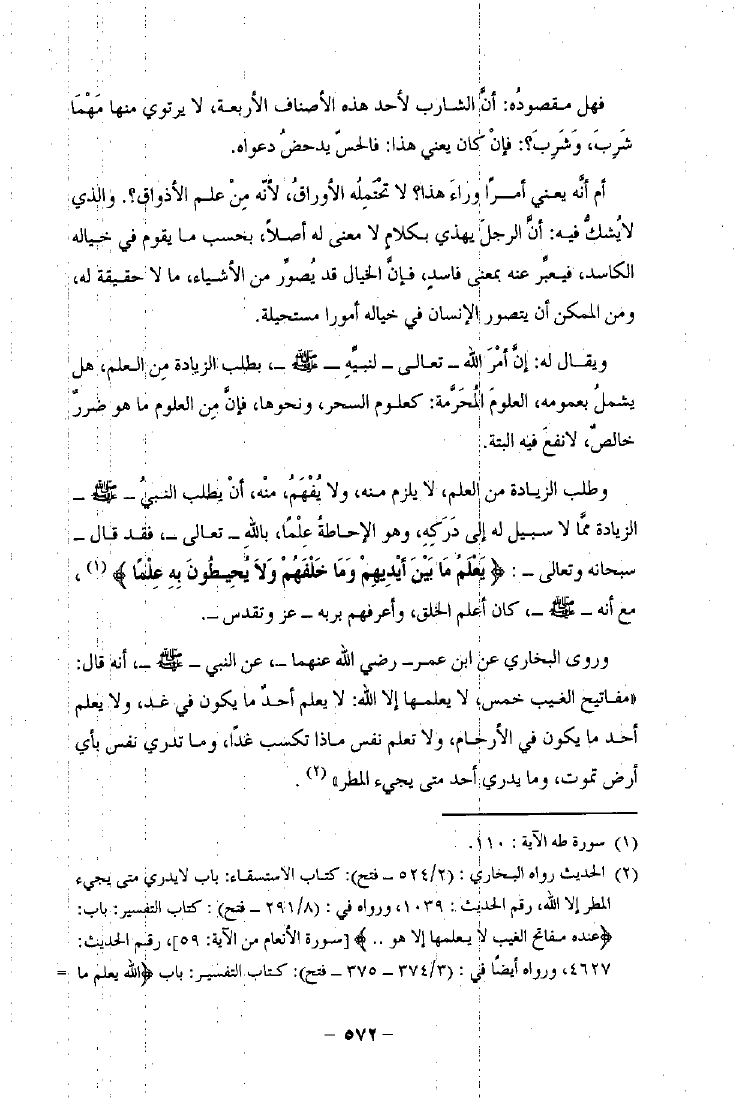 فهل مقصودُه: أنَّ الشارب لأحد هذه الأصناف الأربعة، لا يرتوي منها مَهْمَا
شَرِبَ، وَشَرِبَ؟: فإنْ كان يعني هذا: فالحسّ يدحضُ دعواه.
أم أنَّه يعني أمرًا وراءَ هذا؟ لا تَحْتَمِلُه الأوراقُ، لأنَّه مِنْ علم الأذواق؟. والذي
لايُشكُّ فيه: أنَّ الرجلَ يهذي بكلامٍ لا معنى له أصلاً، بحسب ما يقوم في خياله
الكاسد، فيعبِّر عنه بمعنى فاسدٍ، فإنَّ الخيال قد يُصوِّر من الأشياء، ما لا حقيقة له،
ومن الممكن أن يتصور الإنسان في خياله أمورا مستحيلة.
ويقال له: إنَّ أمْرَ الله ــ تعالى ــ لنبيِّهِ ــ ﷺ ــ، بطلب الزيادة مِن العلم، هل
يشملُ بعمومه، العلومَ المُحَرَّمة: كعلوم السحر، ونحوها، فإنَّ مِن العلوم ما هو ضررٌ
خالصٌ، لانفعَ فيه البتة.
وطلب الزيادة من العلم، لا يلزم منه، ولا يُفْهَمُ، منْه، أنْ يطلب النبيُ ــ ﷺ ــ
الزيادة ممَّا لا سبيل له إلى دَرَكِهِ، وهو الإحاطةُ علْمًا، باللهِ ــ تعالى ــ، فقد قال ــ
سبحانه وتعالى ــ : ﴿ يَعْلَمُ مَا بَيْنَ أَيْدِيهِمْ وَمَا خَلْفَهُمْ وَلاَ يُحِيطُونَ بِهِ عِلْمًا ﴾ (١) ،
مع أنه ــ ﷺ ــ، كان أعلم الخلق، وأعرفهم بربه ــ عز وتقدس ــ.
وروى البخاري عن ابن عمر ــ رضي الله عنهما ــ، عن النبي ــ ﷺ ــ، أنه قال:
«مفاتيح الغيب خمس، لا يعلمها إلا الله: لا يعلم أحدٌ ما يكون في غد، ولا يعلم
أحد ما يكون في الأرحام، ولا تعلم نفس ماذا تكسب غدًا، وما تدري نفس بأي
أرض تموت، وما يدري أحد متى يجيء المطر» (٢) .
(١) سورة طه الآية : ١١٠.
(٢) الحديث رواه البخاري : (٥٢٤/٢ ــ فتح): كتاب الاستسقاء: باب لايدري متى يجيء
المطر إلا الله، رقم الحديث : ١٠٣٩، ورواه في : (٢٩١/٨ ــ فتح) : كتاب التفسير: باب:
﴿عنده مفاتح الغيب لا يعلمها إلا هو .. ﴾ [سورة الأنعام من الآية: ٥٩]، رقم الحديث:
٤٦٢٧، ورواه أيضًا في : (٣٧٤/٣ ــ ٣٧٥ ــ فتح): كتاب التفسير: باب ﴿الله يعلم ما =
– ٥٧٢ –